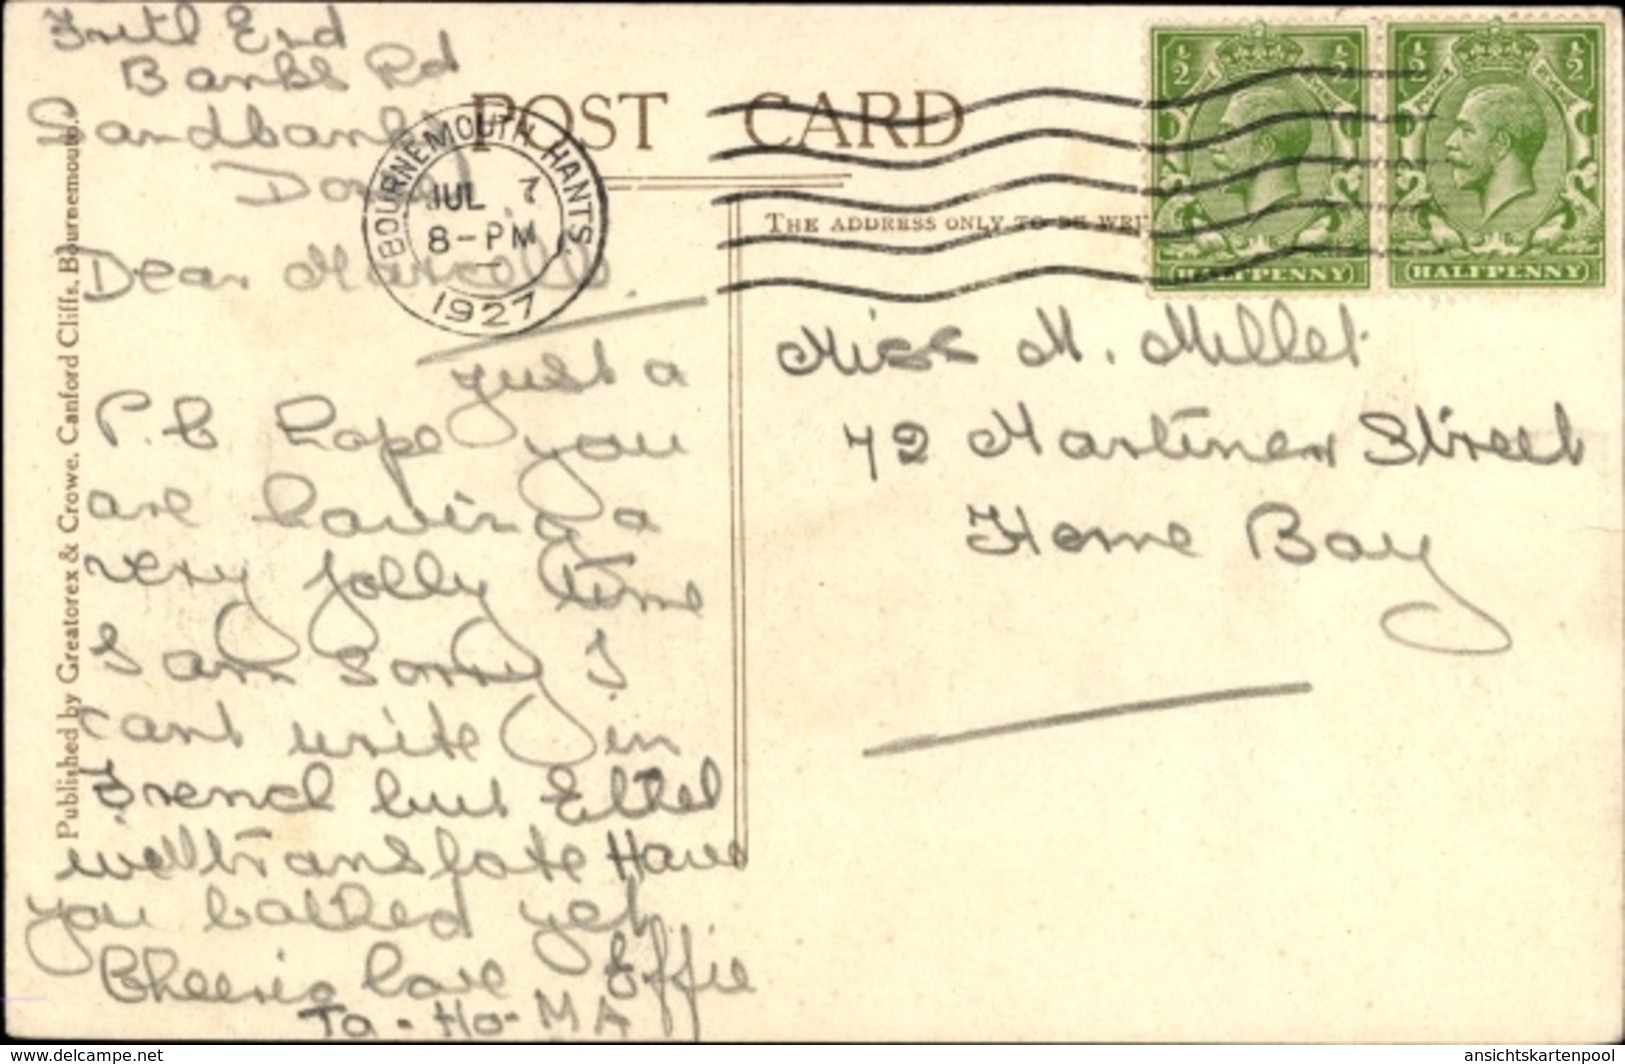 Frith End
Banks Rd
Sandbanks
Dorset
POST CARD
BOURNEMOUTH, HANTS.
JUL 7
8-PM
1927
THE ADDRESS ONLY TO BE WRI
1/2 1/2
HALFPENNY
1/2 1/2
HALFPENNY
Dear Marcelle
just a
P.C hope you
are having a
very jolly time
I am sorry I
cant write in
French but Ethel
will translate Have
you bathed yet
Cheerio love Effie
TA-HO-MA
Miss M. Millet
72 Mortimer Street
Herne Bay
Published by Greatorex & Crowe, Canford Cliffs, Bournemouth.
www.delcampe.net
ansichtskartenpool